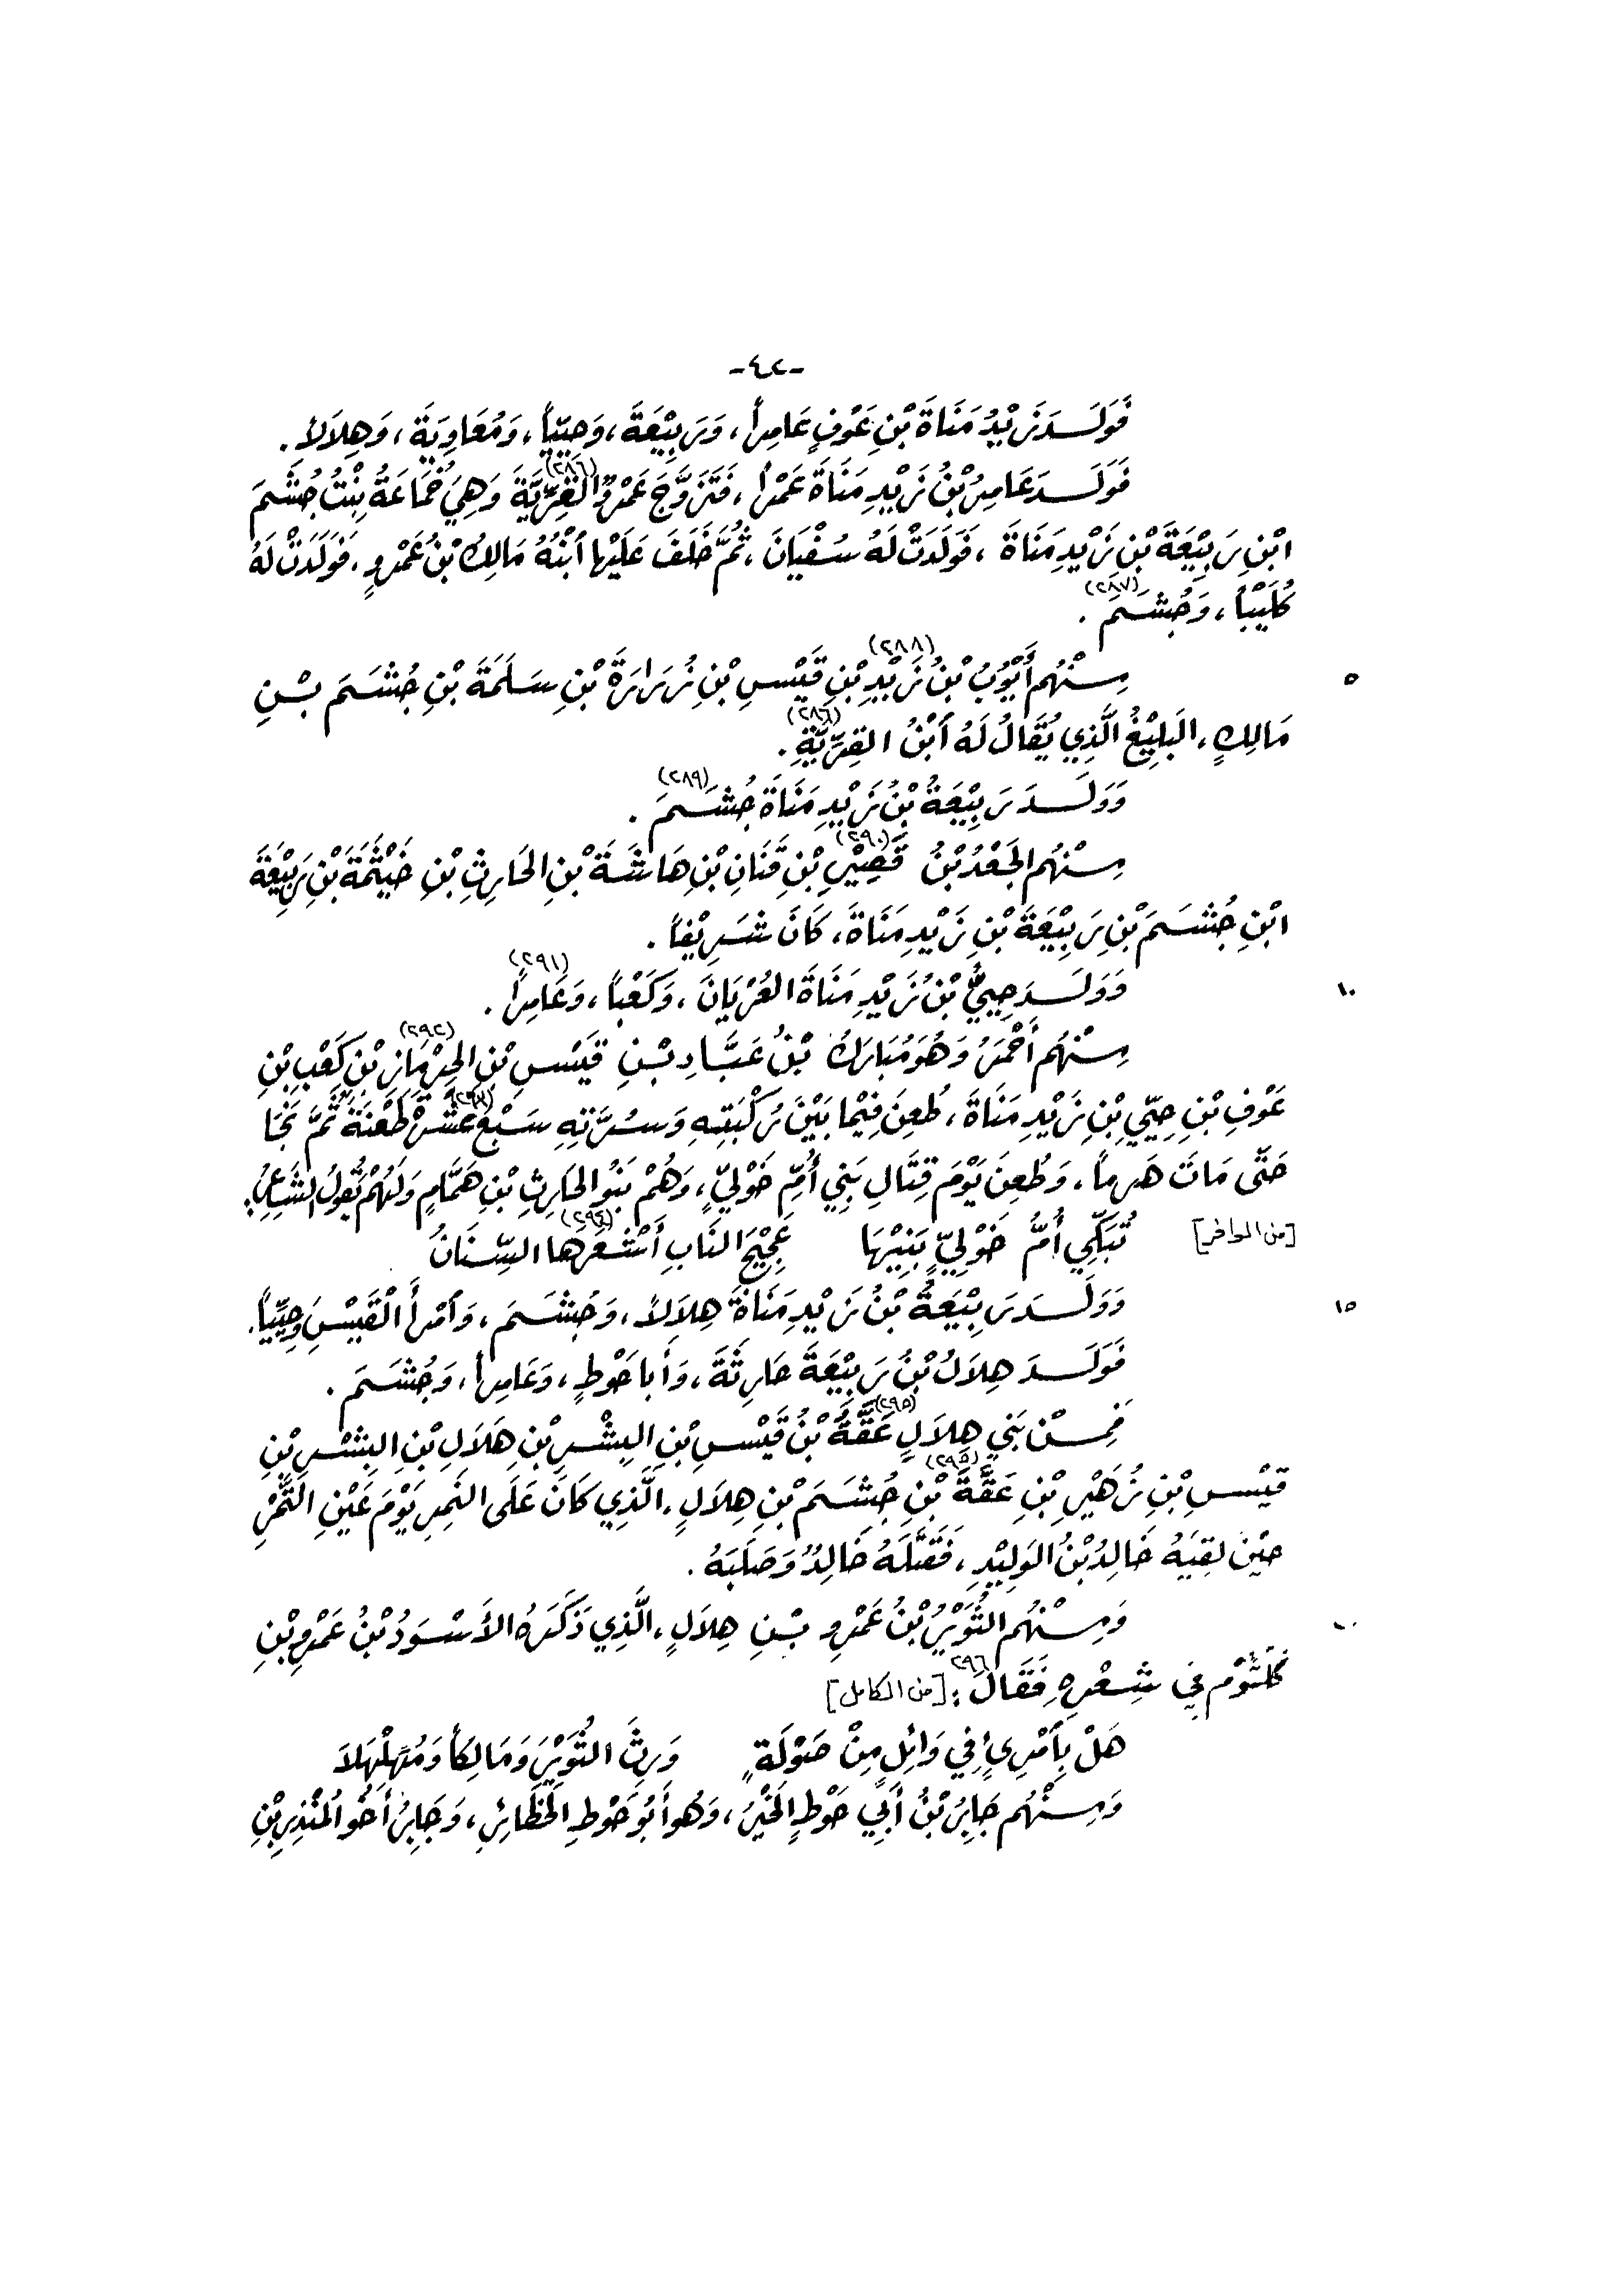 -٤٢-
فَوَلَدَ زَيْدُ مَنَاةَ بْنِ عَوْفٍ عَامِراً، وَرَبِيْعَةَ، وَحِيَيّاً، وَمُعَاوِيَةَ، وَهِلَالاً.
فَوَلَدَ عَامِرُ بْنُ زَيْدِ مَنَاةَ عَمْراً، فَتَزَوَّجَ عَمْرٌو القِرِّيَّةَ (٢٨٦) وَهِيَ خُمَاعَةُ بِنْتُ جُشَمَ
ابْنِ رَبِيْعَةَ بْنِ زَيْدِ مَنَاةَ، فَوَلَدَتْ لَهُ سُفْيَانَ، ثُمَّ خَلَفَ عَلَيْها ٱبْنُهُ مَالِكُ بْنُ عَمْرٍو، فَوَلَدَتْ لَهُ
كُلَيْباً، وَجُشَمَ (٢٨٧).
٥ مِنْهُم أَيُّوْبُ بْنُ زَيْدِ (٢٨٨) بْنِ قَيْسِ بْنِ زُرَارَةَ بْنِ سَلَمَةَ بْنِ جُشَمَ بْنِ
مَالِكٍ، البَلِيْغُ الَّذِي يُقَالُ لَهُ ٱبْنُ القِرِّيَّةِ (٢٨٦).
وَوَلَدَ رَبِيْعَةُ بْنُ زَيْدِ مَنَاةَ جُشَمَ (٢٨٩).
مِنْهُم الجَعْدُ بْنُ قَصِيْرِ (٢٩٠) بْنِ قَنَانِ بْنِ هَاشَةَ بْنِ الحَارِثِ بْنِ خَيْثَمَةَ بْنِ رَبِيْعَةَ
ابْنِ جُشَمَ بْنِ رَبِيْعَةَ بْنِ زَيْدِ مَنَاةَ، كَانَ شَرِيْفاً.
١٠ وَوَلَدَ حِيَيُّ بْنُ زَيْدِ مَنَاةَ العُرْيَانَ، وَكَعْباً، وَعَامِراً (٢٩١).
مِنْهُم أَحْمَرُ وَهُوَ مُبَارَكُ بْنُ عَبَّادِ بْنِ قَيْسِ بْنِ الحِرْمَازِ (٢٩٢) بْنِ كَعْبِ بْنِ
عَوْفِ بْنِ حِيَيِّ بْنِ زَيْدِ مَنَاةَ، طُعِنَ فِيْما بَيْنَ رُكْبَتِهِ وَسُرَّتِهِ سَبْعَ عَشْرَةَ (٢٩٣) طَعْنَةً ثُمَّ نَجَا
حَتَّى مَاتَ هَرِماً، وَطُعِنَ يَوْمَ قِتَالِ بَنِي أُمِّ خَوْلِيٍّ، وَهُمْ بَنُو الحَارِثِ بْنِ هَمَّامٍ وَلَهُمْ يَقُولُ الشَّاعِرُ:
[من الوافر] تُبَكِّي أُمُّ خَوْلِيٍّ بَنِيْهَا عَجِيْجَ النَّابِ أَشْعَرَها (٢٩٤) السِّنَانُ
١٥ وَوَلَدَ رَبِيْعَةُ بْنُ زَيْدِ مَنَاةَ هِلَالاً، وَجُشَمَ، وَٱمْرَأَ الْقَيْسِ، وَحِيَيّاً.
فَوَلَدَ هِلَالُ بْنُ رَبِيْعَةَ حَارِثَةَ، وَأَبا حَوْطٍ، وَعَامِراً، وَجُشَمَ.
فَمِنْ بَنِي هِلَالٍ عَقَّةُ (٢٩٥) بْنُ قَيْسِ بْنِ البِشْرِ بْنِ هِلَالِ بْنِ البِشْرِ بْنِ
قَيْسِ بْنِ زُهَيْرِ بْنِ عَقَّةَ (٢٩٥) بْنِ جُشَمَ بْنِ هِلَالٍ، الَّذِي كَانَ عَلَى النَّمِرِ يَوْمَ عَيْنِ التَّمْرِ
حِيْنَ لَقِيَهُ خَالِدُ بْنُ الوَلِيْدِ، فَقَتَلَهُ خَالِدٌ وَصَلَبَهُ.
٢٠ وَمِنْهُم الثُّوَيْرُ بْنُ عَمْرِو بْنِ هِلَالٍ، الَّذِي ذَكَرَهُ الأَسْوَدُ بْنُ عَمْرِو بْنِ
كُلْثُوْمٍ فِي شِعْرِهِ فَقَالَ ٢٩٦: [من الكامل]
هَلْ بِٱمْرِئٍ فِي وَائِلٍ مِنْ صَوْلَةٍ وَرِثَ الثُّوَيْرَ وَمَالِكاً وَمُهَلْهِلَا
وَمِنْهُم جَابِرُ بْنُ أَبِي حَوْطٍ الخَيْرُ، وَهُوَ أَبُو حَوْطِ الحَظَائِرِ، وَجَابِرُ أَخُو المُنْذِرِ بْنِ